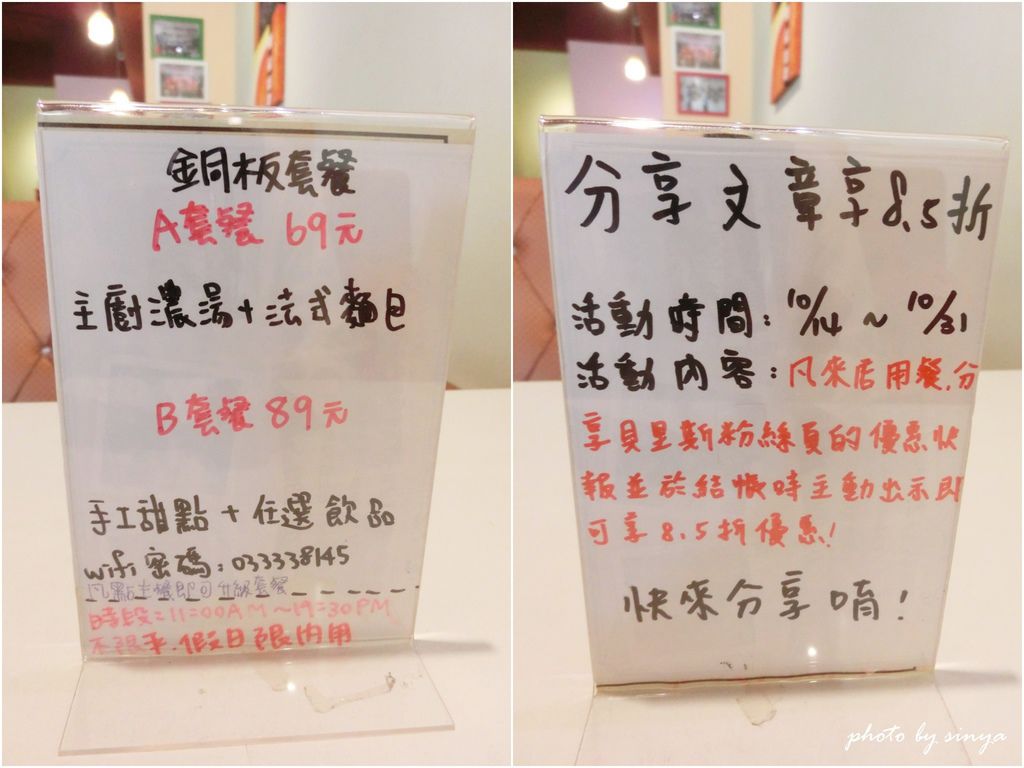 銅板套餐
A套餐 69元
主廚濃湯+法式麵包
B套餐 89元
手工甜點+任選飲品
wifi密碼:033338145
凡點主餐即可升級套餐
時段=11=00AM~19=30PM
不限平.假日限內用
分享文章享8.5折
活動時間:10/14~10/31
活動內容:凡來店用餐,分
享貝里斯粉絲頁的優惠快
報並於結帳時主動出示即
可享8.5折優惠!
快來分享唷!
photo by sinya